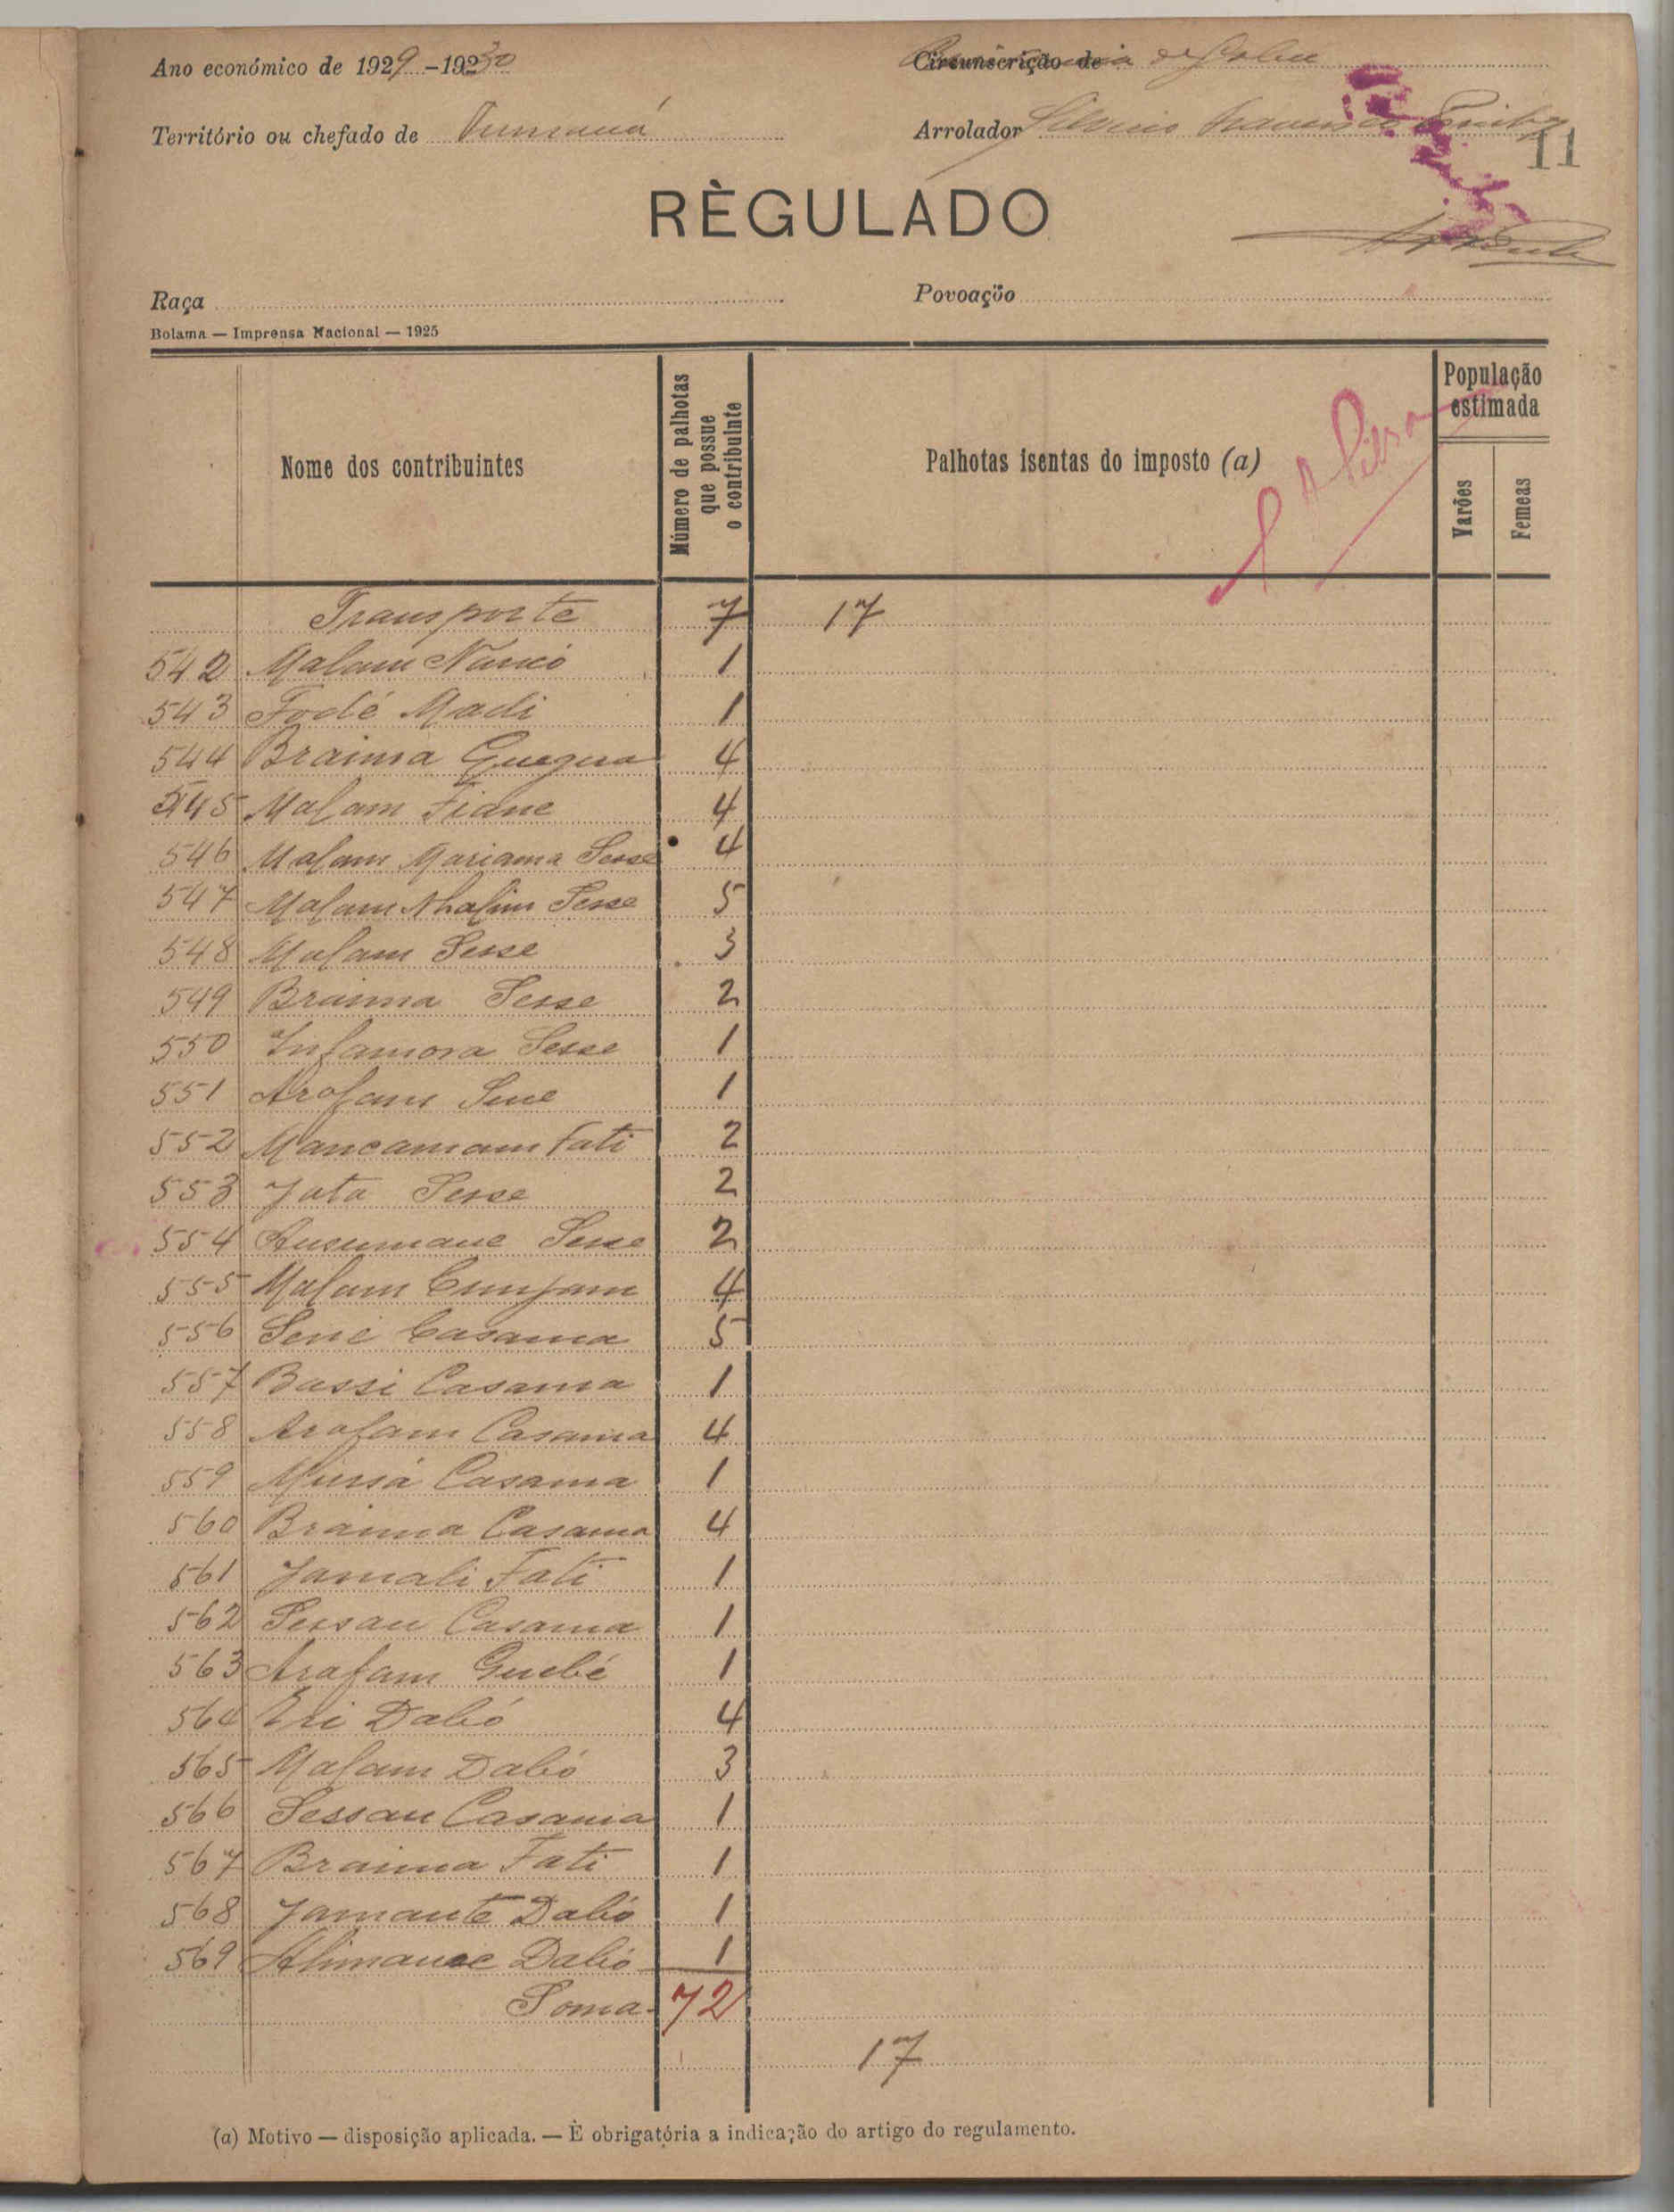 Ano económico de 1929-1930
Circunscrição de
Território ou chefado de
Arrolador
11
RÈGULADO
Raça
Povoação
Bolama — Imprensa Nacional — 1925
Nome dos contribuintes
Múmero de palhotas que possue o contribuinte
Palhotas isentas do imposto (a)
População estimada
Varões
Femeas
Transporte 7 17
542 Malam 1
543 Fodé Madi 1
544 Braima 4
545 Malam Fiane 4
546 Malam Mariama Sesse 4
547 Malam Sesse 5
548 Malam Sesse 3
549 Braima Sesse 2
550 Infamora Sesse 1
551 Arafam 1
552 Mancamam Fati 2
553 Jata Sesse 2
554 Sesse 2
555 Malam 4
556 Casama 5
557 Bassi Casama 1
558 Arafam Casama 4
559 Mussá Casama 1
560 Braima Casama 4
561 Jamali Fati 1
562 Sessau Casama 1
563 Arafam Guebé 1
564 Dabó 4
565 Malam Dabó 3
566 Sessau Casama 1
567 Braima Fati 1
568 Jamante Dabó 1
569 Dabó 1
Soma 72
17
(a) Motivo — disposição aplicada. — È obrigatória a indicação do artigo do regulamento.